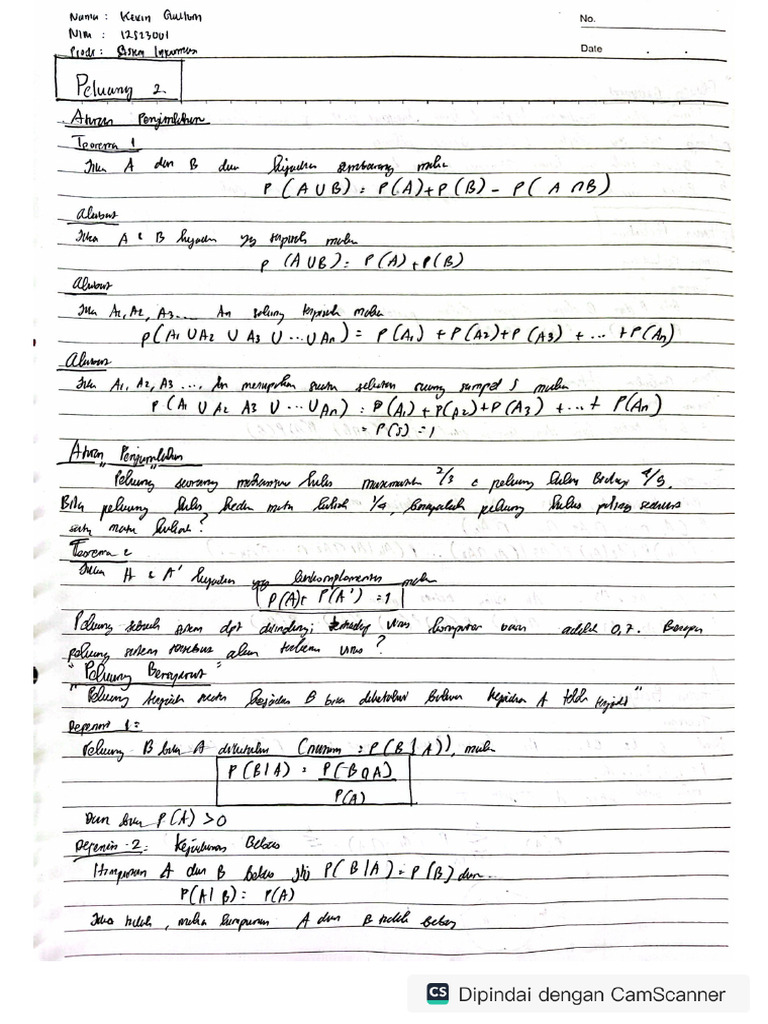 Nama : Kevin Gultom
No.
NIM : 12S23001
Date . .
Prodi : Sistem Informasi
Peluang 2.
Aturan Penjumlahan
Teorema 1
Jika A dan B dua kejadian sembarang maka
P (A ∪ B) = P(A)+P(B) - P( A ∩ B)
Akibat
Jika A & B kejadian yg terpisah maka
P (A ∪ B) = P(A)+P(B)
Akibat
Jika A1, A2, A3.... An saling terpisah maka
P(A1 ∪ A2 ∪ A3 ∪ ... ∪ An) = P(A1) + P(A2)+P(A3) + ... + P(An)
Akibat
Jika A1, A2, A3 ..., An merupakan suatu sekatan ruang sampel S maka
P (A1 ∪ A2 A3 ∪ ... ∪ An) = P(A1) + P(A2)+P(A3) + ... + P(An)
= P(S) = 1
Aturan Penjumlahan
"Peluang" seorang mahasiswa lulus matematika 2/3 & peluang lulus Biologi 4/9.
Bila peluang lulus kedua mata kuliah 1/4, berapakah peluang lulus paling sedikit
satu mata kuliah?
Teorema 2
Jika A & A' kejadian yg berkomplemen maka
P(A)+ P(A') = 1
Peluang sebuah sistem dpt dilindungi terhadap virus komputer baru adalah 0,7. Berapa
peluang sistem tersebut akan terkena virus?
"Peluang Bersyarat"
"Peluang terjadi suatu kejadian B bila diketahui bahwa kejadian A telah terjadi"
Definisi 1:
Peluang B bila A diketahui (notasi : P(B | A)), maka
P(B|A) = P(B ∩ A)
P(A)
Dan bila P(A) > 0
Definisi -2: Kejadian Bebas
Himpunan A dan B bebas jhj P(B|A) = P(B) dan
P(A|B) = P(A)
Jika tidak, maka himpunan A dan B tidak bebas
CS Dipindai dengan CamScanner